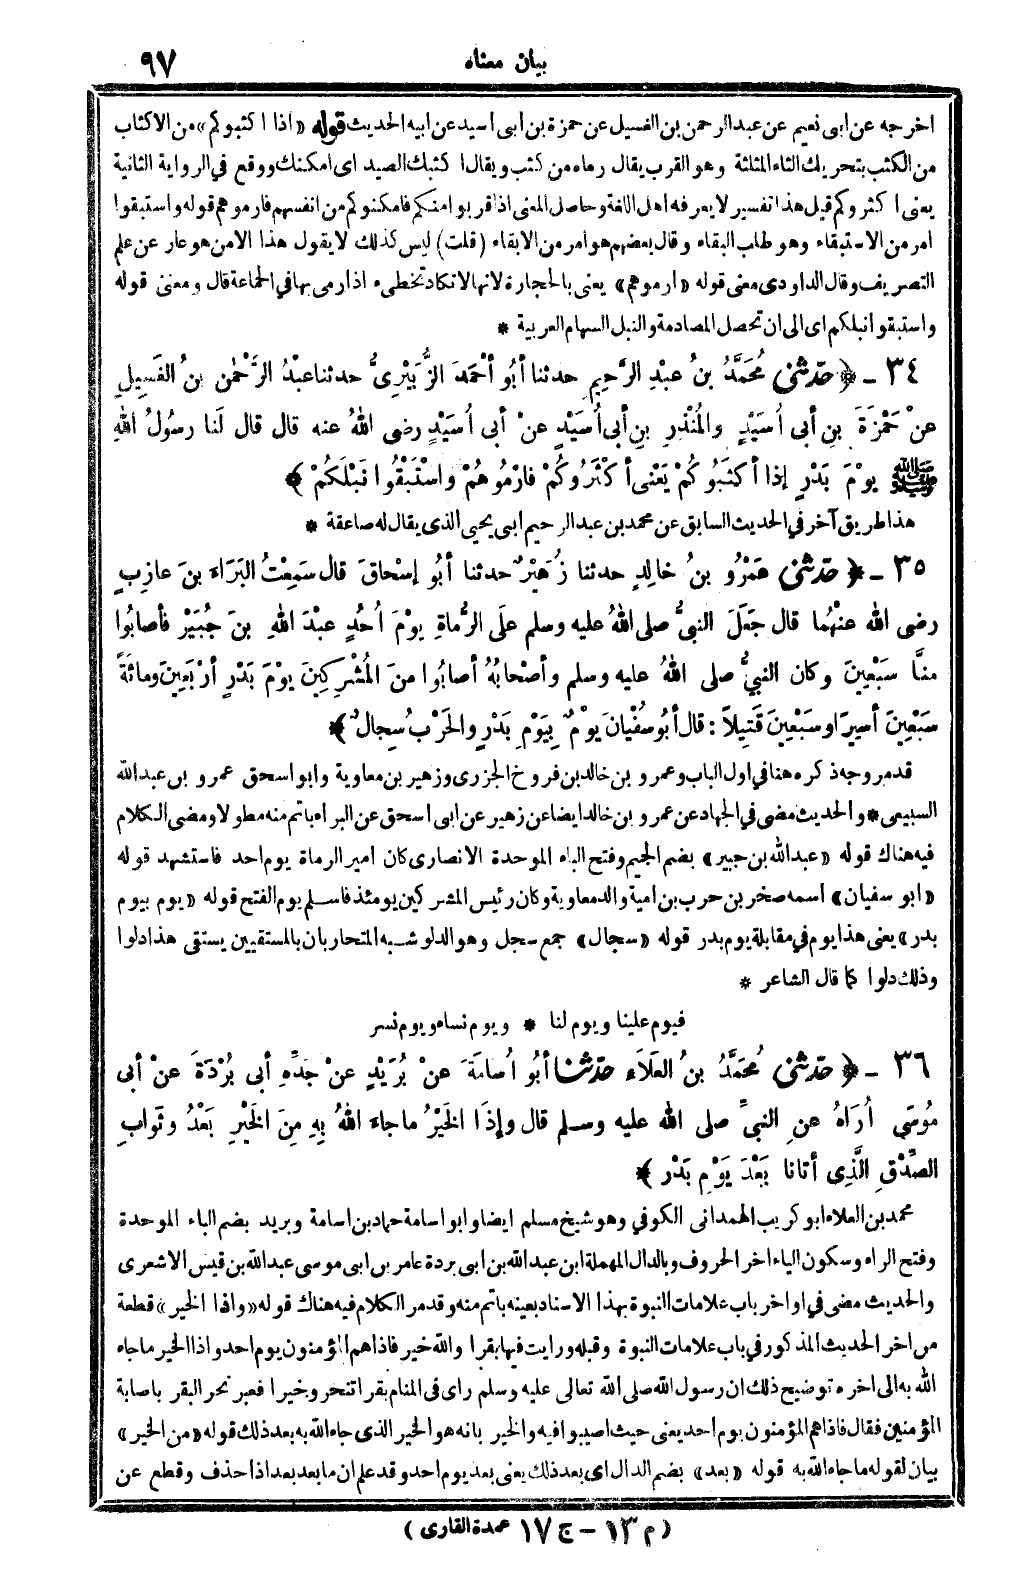 بيان معناه ٩٧
اخرجه عن ابى نعيم عن عبد الرحمن بن الغسيل عن حمزة بن ابى اسيد عن ابيه الحديث قوله «اذا اكثبوكم» من الاكثاب
من الكثب بتحريك الثاء المثلثة وهو القرب يقال رماه من كثب ويقال اكثبك الصيد اى امكنك ووقع في الرواية الثانية
يعنى اكثروكم قيل هذا تفسير لا يعرفه اهل اللغة وحاصل المعنى اذا قربوا منكم فامكنوكم من انفسهم فارموهم قوله واستبقوا
امر من الاستبقاء وهو طلب البقاء وقال بعضهم هو امر من الابقاء (قلت) ليس كذلك لا يقول هذا الا من هو عار عن علم
التصريف وقال الداودى معنى قوله «ارموهم» يعنى بالحجارة لانها لا تكاد تخطىء اذا رمى بها في الجماعة قال ومعنى قوله
واستبقوا نبلكم اى الى ان تحصل المصادمة والنبل السهام العربية *
٣٤ - ﴿حدثني مُحَمَّدُ بنُ عبدِ الرَّحِيمِ حدثنا أبُو أحْمَدَ الزُّبَيْرِىُّ حدثنا عبْدُ الرَّحْمٰنِ بنُ الغَسِيلِ
عنْ حَمْزَةَ بنِ أبى أُسَيْدٍ والمُنْذِرِ بنِ أبى أُسَيْدٍ عنْ أبى أُسَيْدٍ رضى اللهُ عنه قال قال لَنا رسُولُ اللهِ
ﷺ يوْمَ بَدْرٍ إذا أكْثَبُوكُمْ يَعْنى أكْثَرُوكُمْ فارْمُوهُمْ واسْتَبْقُوا نَبْلَكُمْ﴾
هذا طريق آخر في الحديث السابق عن محمد بن عبد الرحيم ابى يحيى الذى يقال له صاعقة *
٣٥ - ﴿حدثني عَمْرُو بنُ خالِدٍ حدثنا زُهَيْرٌ حدثنا أبُو إسْحاقَ قال سَمِعْتُ البَرَاءَ بنَ عازِبٍ
رضى الله عنْهُما قال جَعَلَ النبىُّ صلى اللهُ عليه وسلم علَى الرُّماةِ يوْمَ أُحُدٍ عبْدَ اللهِ بنَ جُبَيْرٍ فأصابُوا
مِنَّا سَبْعِينَ وكان النبيُّ صلى اللهُ عليه وسلم وأصْحابُهُ أصابُوا منَ المُشْرِكِينَ يوْمَ بَدْرٍ أرْبَعِينَ ومائَةً
سَبْعِينَ أسِيرًا وسَبْعِينَ قَتِيلاً : قال أبُو سُفْيانَ يوْمٌ بِيَوْمِ بَدْرٍ والحَرْبُ سِجالٌ﴾
قد مر وجه ذكره هنا في اول الباب وعمرو بن خالد بن فروخ الجزرى وزهير بن معاوية وابو اسحق عمرو بن عبد الله
السبيعى * والحديث مضى في الجهاد عن عمرو بن خالد ايضا عن زهير عن ابى اسحق عن البراء باتم منه مطولا ومضى الكلام
فيه هناك قوله «عبد الله بن جبير» بضم الجيم وفتح الباء الموحدة الانصارى كان امير الرماة يوم احد فاستشهد قوله
«ابو سفيان» اسمه صخر بن حرب بن امية والد معاوية وكان رئيس المشركين يومئذ فاسلم يوم الفتح قوله «يوم بيوم
بدر» يعنى هذا يوم في مقابلة يوم بدر قوله «سجال» جمع سجل وهو الدلو شبه المتحاربان بالمستقيين يستقى هذا دلوا
وذلك دلوا كما قال الشاعر *
فيوم علينا ويوم لنا * ويوم نساء ويوم نسر
٣٦ - ﴿حدثني مُحَمَّدُ بنُ العَلَاءِ حدثنا أبُو أُسامَةَ عنْ بُرَيْدٍ عنْ جَدِّهِ أبى بُرْدَةَ عنْ أبى
مُوسَى أُرَاهُ عنِ النبىِّ صلى الله عليه وسلم قال وإذَا الخَيْرُ ماجاءَ اللهُ بِهِ مِنَ الخَيْرِ بَعْدُ وثَوَابِ
الصِّدْقِ الَّذِى أتانا بَعْدَ يَوْمِ بَدْرٍ﴾
محمد بن العلاء ابو كريب الهمدانى الكوفي وهو شيخ مسلم ايضا وابو اسامة حماد بن اسامة وبريد بضم الباء الموحدة
وفتح الراء وسكون الياء اخر الحروف وبالدال المهملة ابن عبد الله بن ابى بردة عامر بن ابى موسى عبد الله بن قيس الاشعرى
والحديث مضى في اواخر باب علامات النبوة بهذا الاسناد بعينه باتم منه وقد مر الكلام فيه هناك قوله «واذا الخير» قطعة
من اخر الحديث المذكور في باب علامات النبوة وقبله ورايت فيها بقرا والله خير فاذاهم المؤمنون يوم احد واذا الخير ماجاء
الله به الى اخره توضيح ذلك ان رسول الله صلى الله تعالى عليه وسلم راى فى المنام بقرا تنحر وخيرا فعبر نحر البقر باصابة
المؤمنين فقال فاذاهم المؤمنون يوم احد يعنى حيث اصيبوا فيه والخير بانه هو الخير الذى جاء الله به بعد ذلك قوله «من الخير»
بيان لقوله ماجاء الله به قوله «بعد» بضم الدال اى بعد ذلك يعنى بعد يوم احد وقد علم ان مابعد بعد اذا حذف وقطع عن
(م ١٣ – ج ١٧ عمدة القارى)